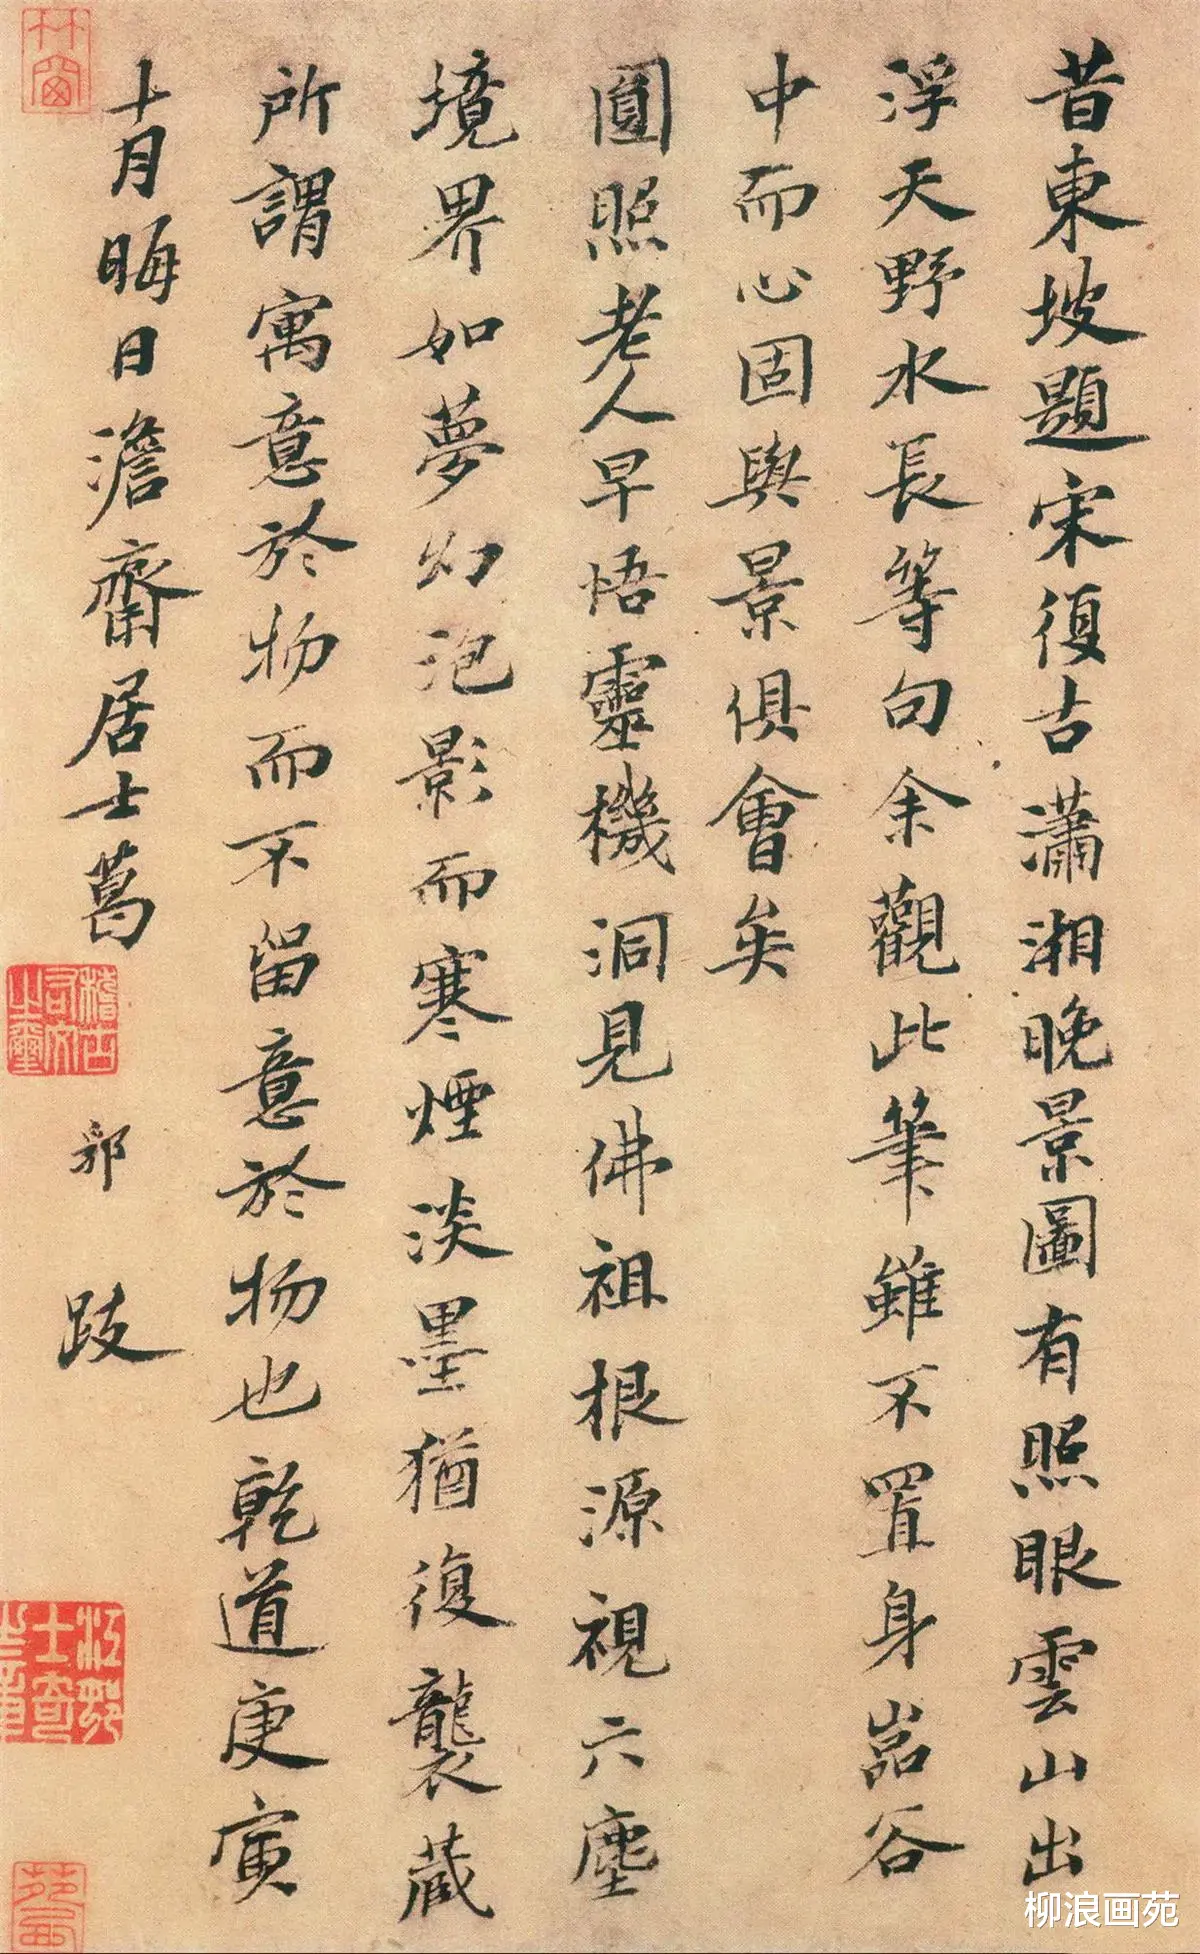 昔東坡題宋復古瀟湘晚景圖有照眼雲山出
浮天野水長等句余觀此筆雖不置身喦谷
中而心固與景俱會矣
圓照老人早悟靈機洞見佛祖根源視六塵
境界如夢幻泡影而寒煙淡墨猶復襲藏
所謂寓意於物而不留意於物也乾道庚寅
十月晦日澹齋居士葛
郛
跋
稽古右文之璽
柳浪画苑